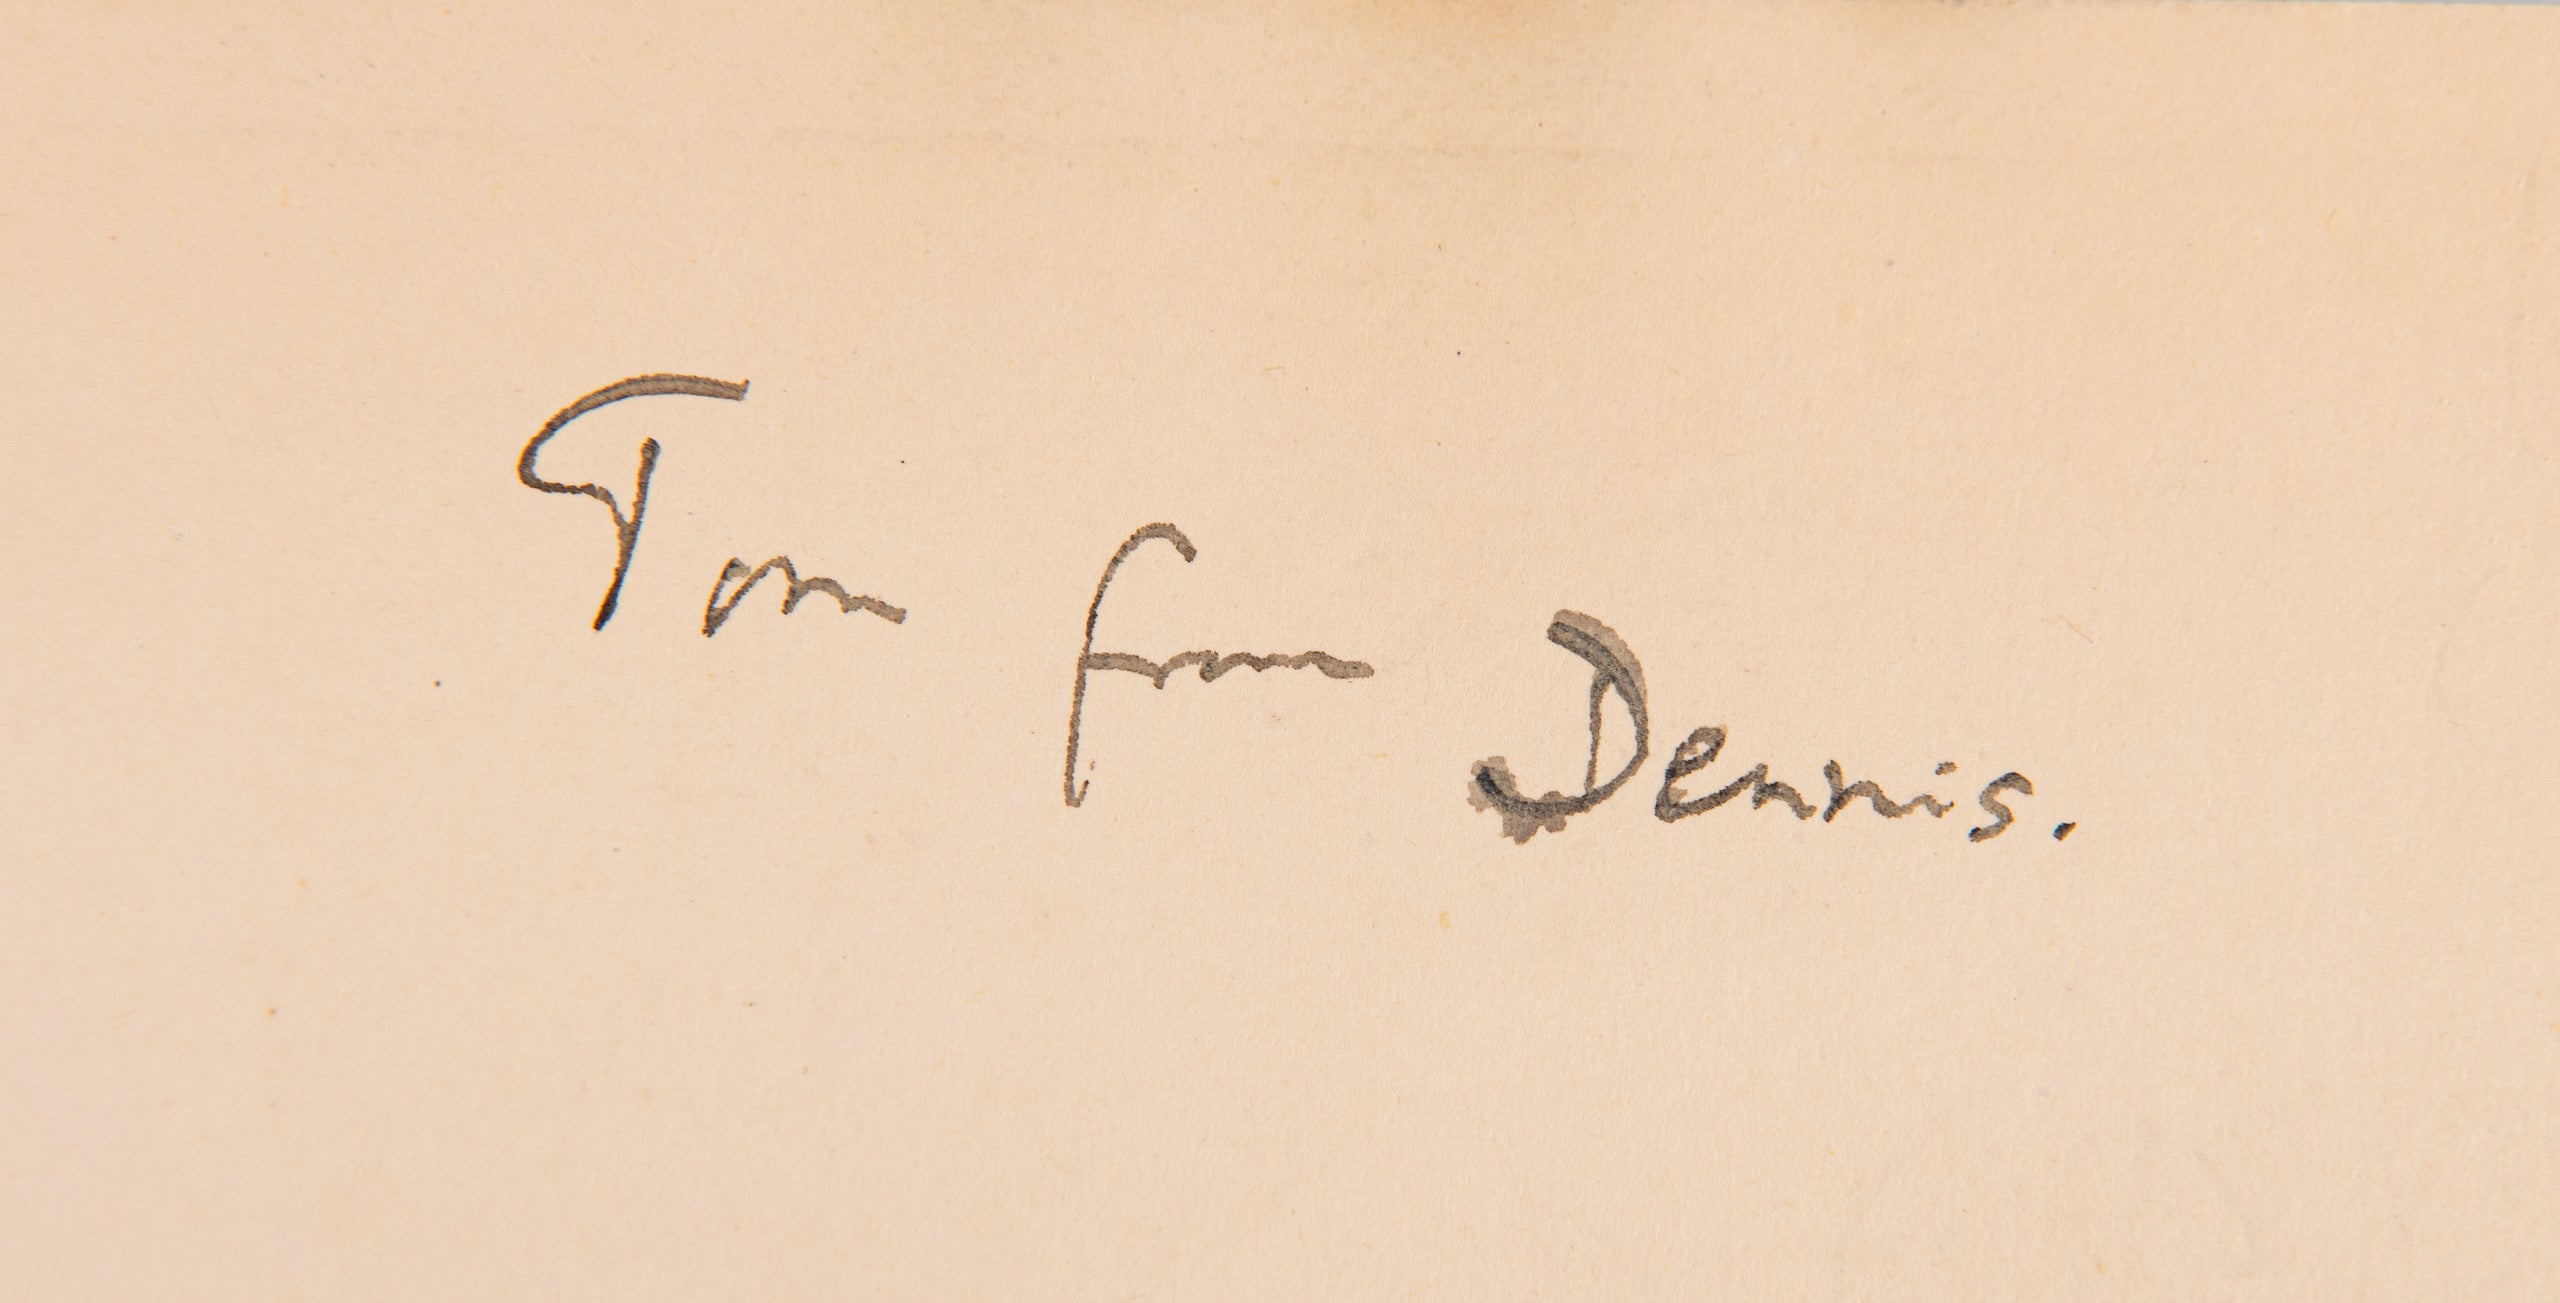 Tom from Dennis.